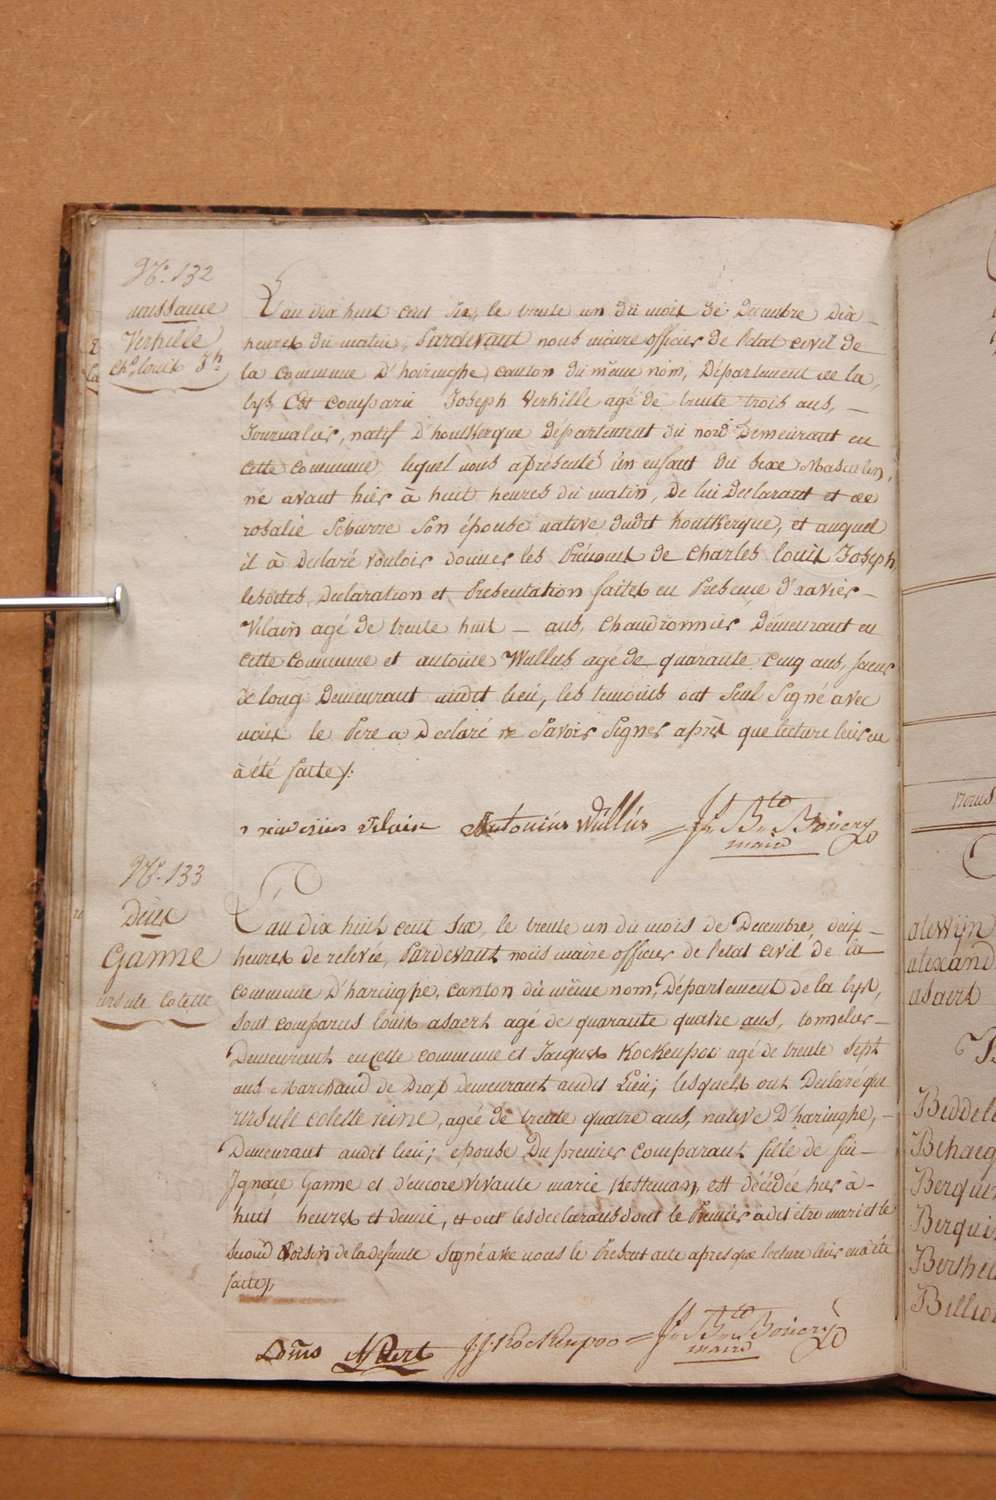 N.º 132
naissance
Verhille
Ch.s louis J.h
L'an dix huit cent six, le trente un du mois de Decembre dix
heures du matin, Pardevant nous maire officier de l'etat civil de
la commune D'haringhe, canton du même nom, Département de la
lys Est comparu Joseph Verhille agé de trente trois ans,
Journalier, natif d'houtkerque département du nord Demeurant en
cette commune, lequel nous a présenté un enfant du sexe Masculin,
né avant hier à huit heures du matin, De lui Declarant et de
rosalie Seburre Son épouse native dudit houtkerque, et auquel
il à Declaré vouloir donner les Prénoms de Charles louis Joseph
lesdites Declaration et Presentation faites en Presence d'xavier
Vilain agé de trente huit ans, Chaudronnier Demeurant en
cette commune et antoine Wullus agé de quarante cinq ans, scieur
de long Demeurant audit lieu, les temoins ont seul Signé avec
nous le Pere a Declaré ne Savoir Signer après que lecture leur en
à été faite ./.
xaverius Vilain Antonius Wüllus J.n B.te Bouery
maire
N.º 133
Deces
Ganne
ursule Colette
L'an dix huit cent six, le trente un du mois de Decembre, deux
heures de relevée, Pardevant nous maire officier de l'etat civil de la
commune D'haringhe, canton du même nom, Département de la lys,
sont comparus louis asaert agé de quarante quatre ans, tonnelier
Demeurent en cette commune et Jaques Kockenpoo agé de trente sept
ans Marchand de Drap demeurant audit Lieu, lesquels ont Declaré que
ursule colette reine, agée de trente quatre ans, native D'haringhe,
Demeurant audit lieu, epouse Du premier comparant fille de feu
Ignace Ganne et d'encore vivante marie Kesteman, est décédée hier à
huit heures et demie, et ont les declarans dont le Premier a dit etre mari et le
second Voisin de la defunte Signé avec nous le Present acte apres que lecture leur en a été
faite ./.
Louis Asaert J.J. Kockenpoo J.n B.te Bouery
maire
nous
alewijn
alexand
asaert
B
Beddele
Behaeg
Berquin
Berquin
Berthel
Billion